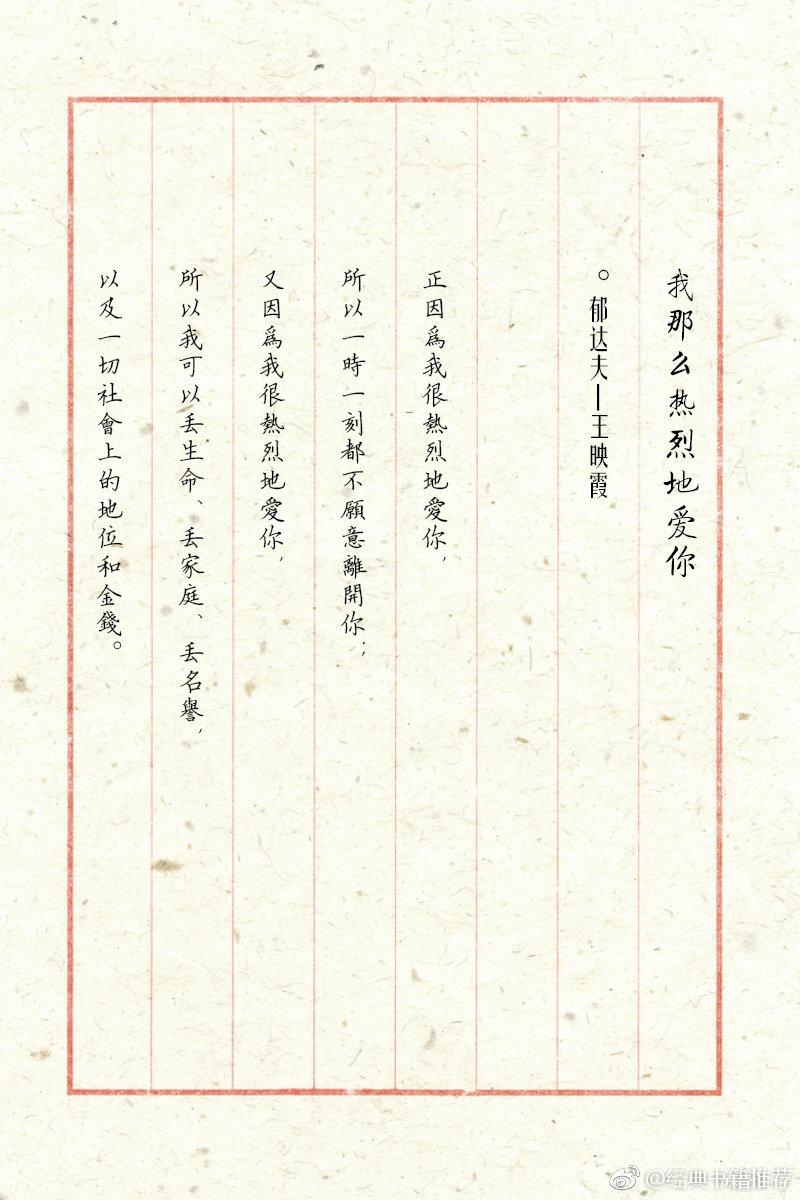 我那么热烈地爱你
。郁达夫—王映霞
正因爲我很熱烈地愛你，
所以一時一刻都不願意離開你；
又因爲我很熱烈地愛你，
所以我可以丢生命、丢家庭、丢名譽，
以及一切社會上的地位和金錢。
@经典书籍推荐